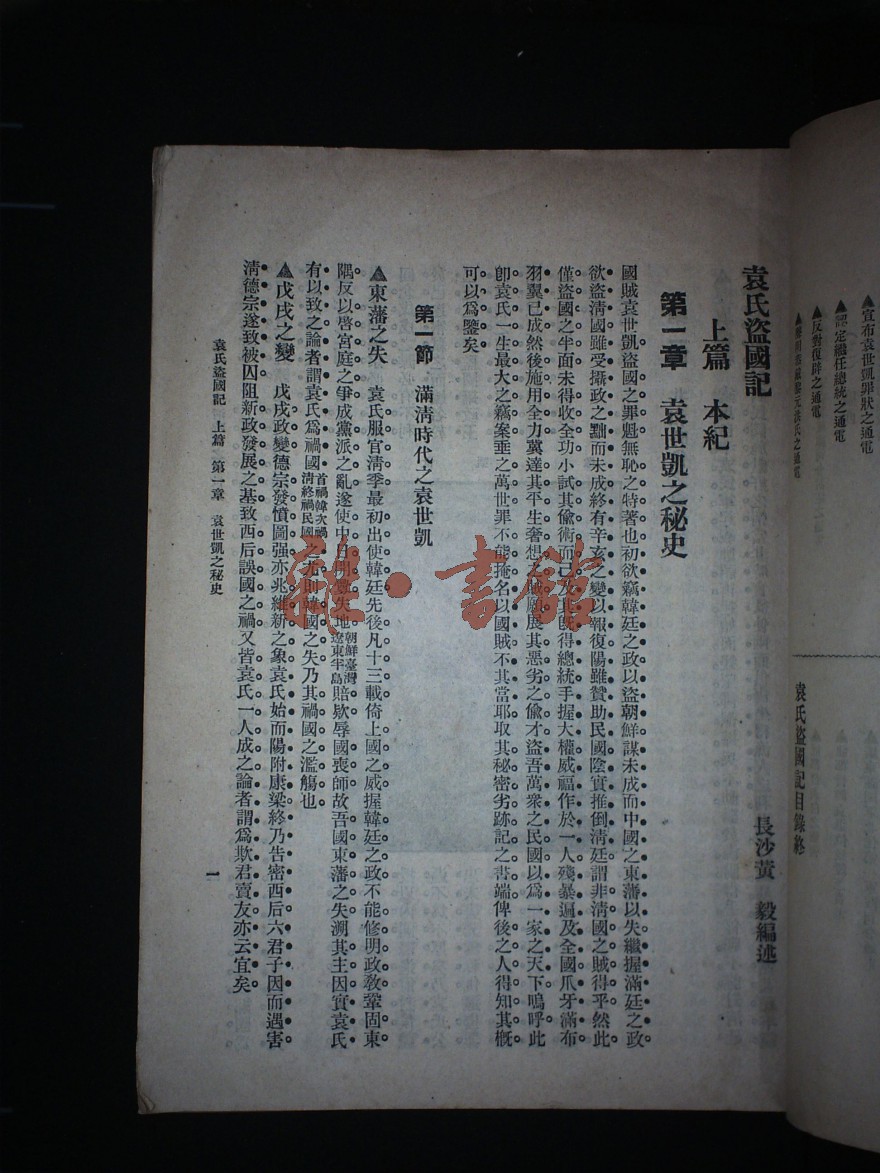 ▲宣布袁世凱罪狀之通電
▲認定繼任總統之通電
▲反對復辟之通電
袁氏盜國記目錄終
袁氏盜國記
長沙黃　毅編述
上篇　本紀
第一章　袁世凱之秘史
國賊袁世凱盜國之罪魁無恥之特著也初欲竊韓廷之政以盜朝鮮謀未成而中國之東藩以失繼握滿廷之政
欲盜清國雖受攝政之黜而未成終有辛亥之變以報復陽雖贊助民國陰實推倒清廷謂非清國之賊得乎然此
僅盜國之半面未得收全功小試其偸術而已及其旣得總統手握大權威福作於一人殘暴遍及全國爪牙滿布
羽翼已成然後施用全力冀達其平生奢想之域愿展其惡劣之偸才盜吾萬衆之民國以爲一家之天下嗚呼此
卽袁氏一生最大之竊案垂之萬世罪不能掩名以國賊不其當耶取其秘密劣跡記之書端俾後之人得知其概
可以爲鑒矣
第一節　滿淸時代之袁世凱
▲東藩之失　袁氏服官淸季最初出使韓廷先後凡十三載倚上國之威握韓廷之政不能修明政敎鞏固東
隅反以啓宮庭之爭成黨派之亂遂使中日開釁失地朝鮮臺灣遼東半島賠欵辱國喪師故吾國東藩之失溯其主因實袁氏
有以致之論者謂袁氏爲禍國首禍韓次禍淸終禍民國之尤則韓國之失乃其禍國之濫觴也
▲戊戌之變　戊戌政變德宗發憤圖强亦兆維新之象袁氏始而陽附康梁終乃告密西后六君子因而遇害
淸德宗遂致被囚阻新政發展之基致西后誤國之禍又皆袁氏一人成之論者謂爲欺君賣友亦云宜矣
袁氏盜國記　上篇　第一章　袁世凱之秘史
一
雜·書館